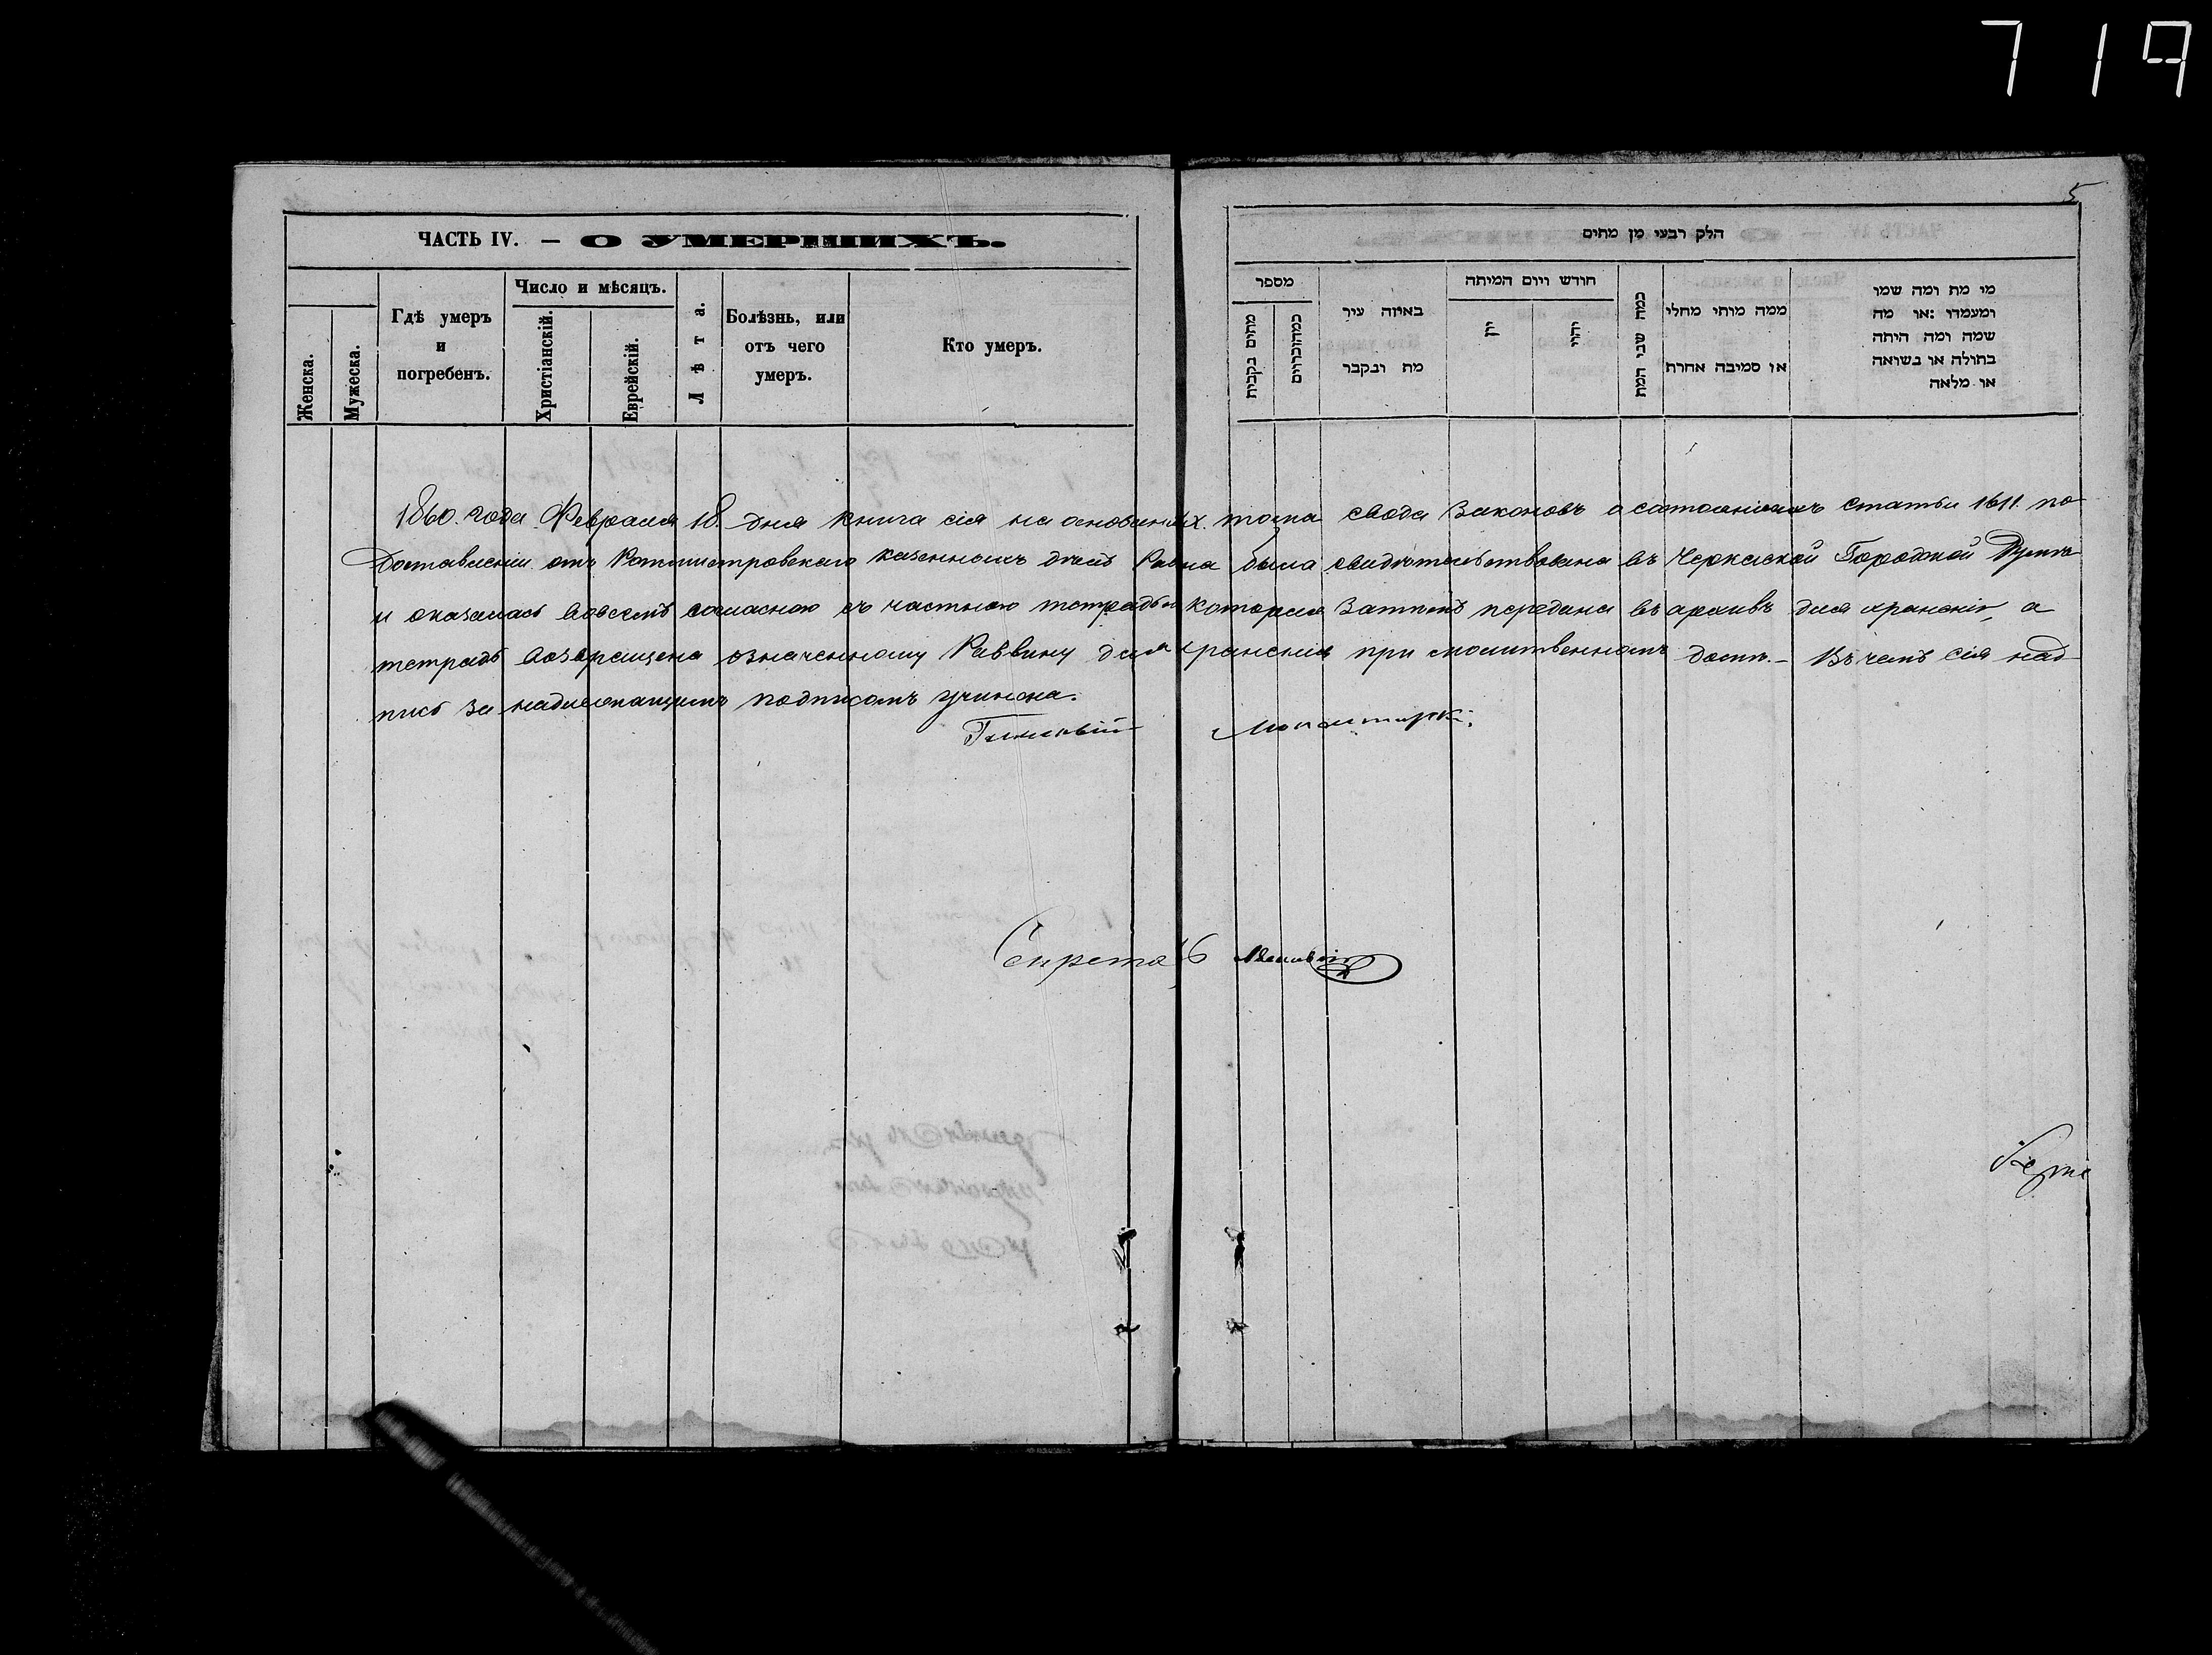 719
5
ЧАСТЬ IV. — О УМЕРШИХЪ.
Женска.
Мужеска.
Гдѣ умеръ
и
погребенъ.
Число и мѣсяцъ.
Христіанскій.
Еврейскій.
Лѣта.
Болѣзнь, или
отъ чего
умеръ.
Кто умеръ.
הלק רבעי מן מתים
מספר
באיזה עיר
מת ונקבר
חודש ויום המיתה
יון
יהודי
כמה שני המת
ממה מותי מחלי
או סמיבה אחרת
מי מת ומה שמו
ומעמדו :או מה
שמה ומה היתה
בתולה או נשואה
או מלאה
1860. года Февраля 18. дня книга сія на основаніи IX. тома свода Законовъ о састояніяхъ статьи 1611. по
доставленіи отъ Ротмистровскаго казеннаго была свидѣтельствована въ Черкаской Городской Думѣ
и оказалась вовсемъ согласною съ частною тетрадью которая Затѣмъ передана въ архивъ для храненія, а
тетрадь возвращена означенному Раввину для храненія при молитвенномъ домѣ. — Въ чемъ сія над
пись за надлежащимъ подписомъ учинена.
Секретарь